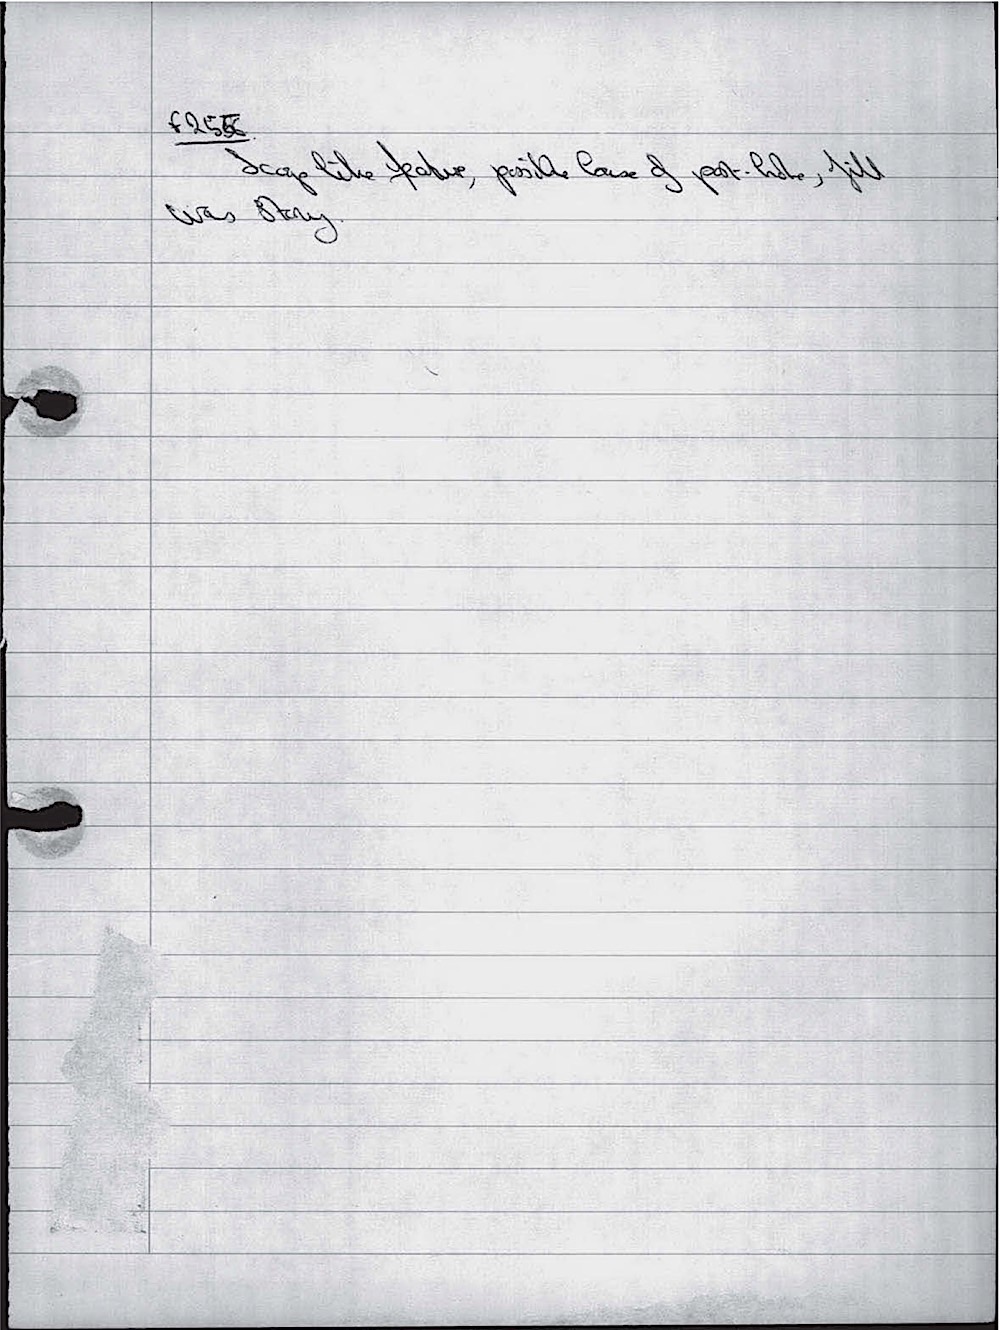 F2556.
Scoop like feature, possible base of post-hole, fill
was stony.